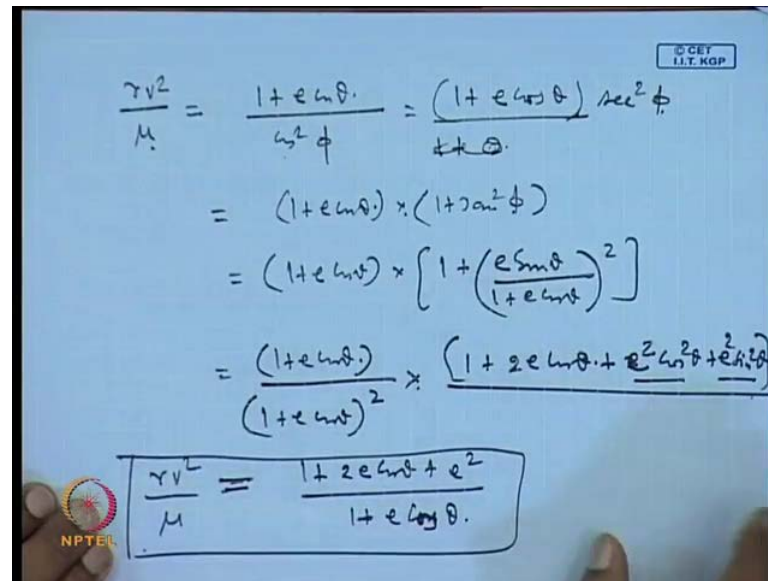 © CET
I.I.T. KGP
rv²/μ = (1 + e cos θ.)/(cos² φ) = (1 + e cos θ) sec² φ
= (1 + e cos θ.) × (1 + tan² φ)
= (1 + e cos θ) × [1 + (e Sin θ/(1 + e cos θ))²]
= (1 + e cos θ.)/(1 + e cos θ)² × (1 + 2e cos θ. + e² cos² θ + e² sin² θ)
rv²/μ = (1 + 2e cos θ + e²)/(1 + e Cos θ.)
NPTEL